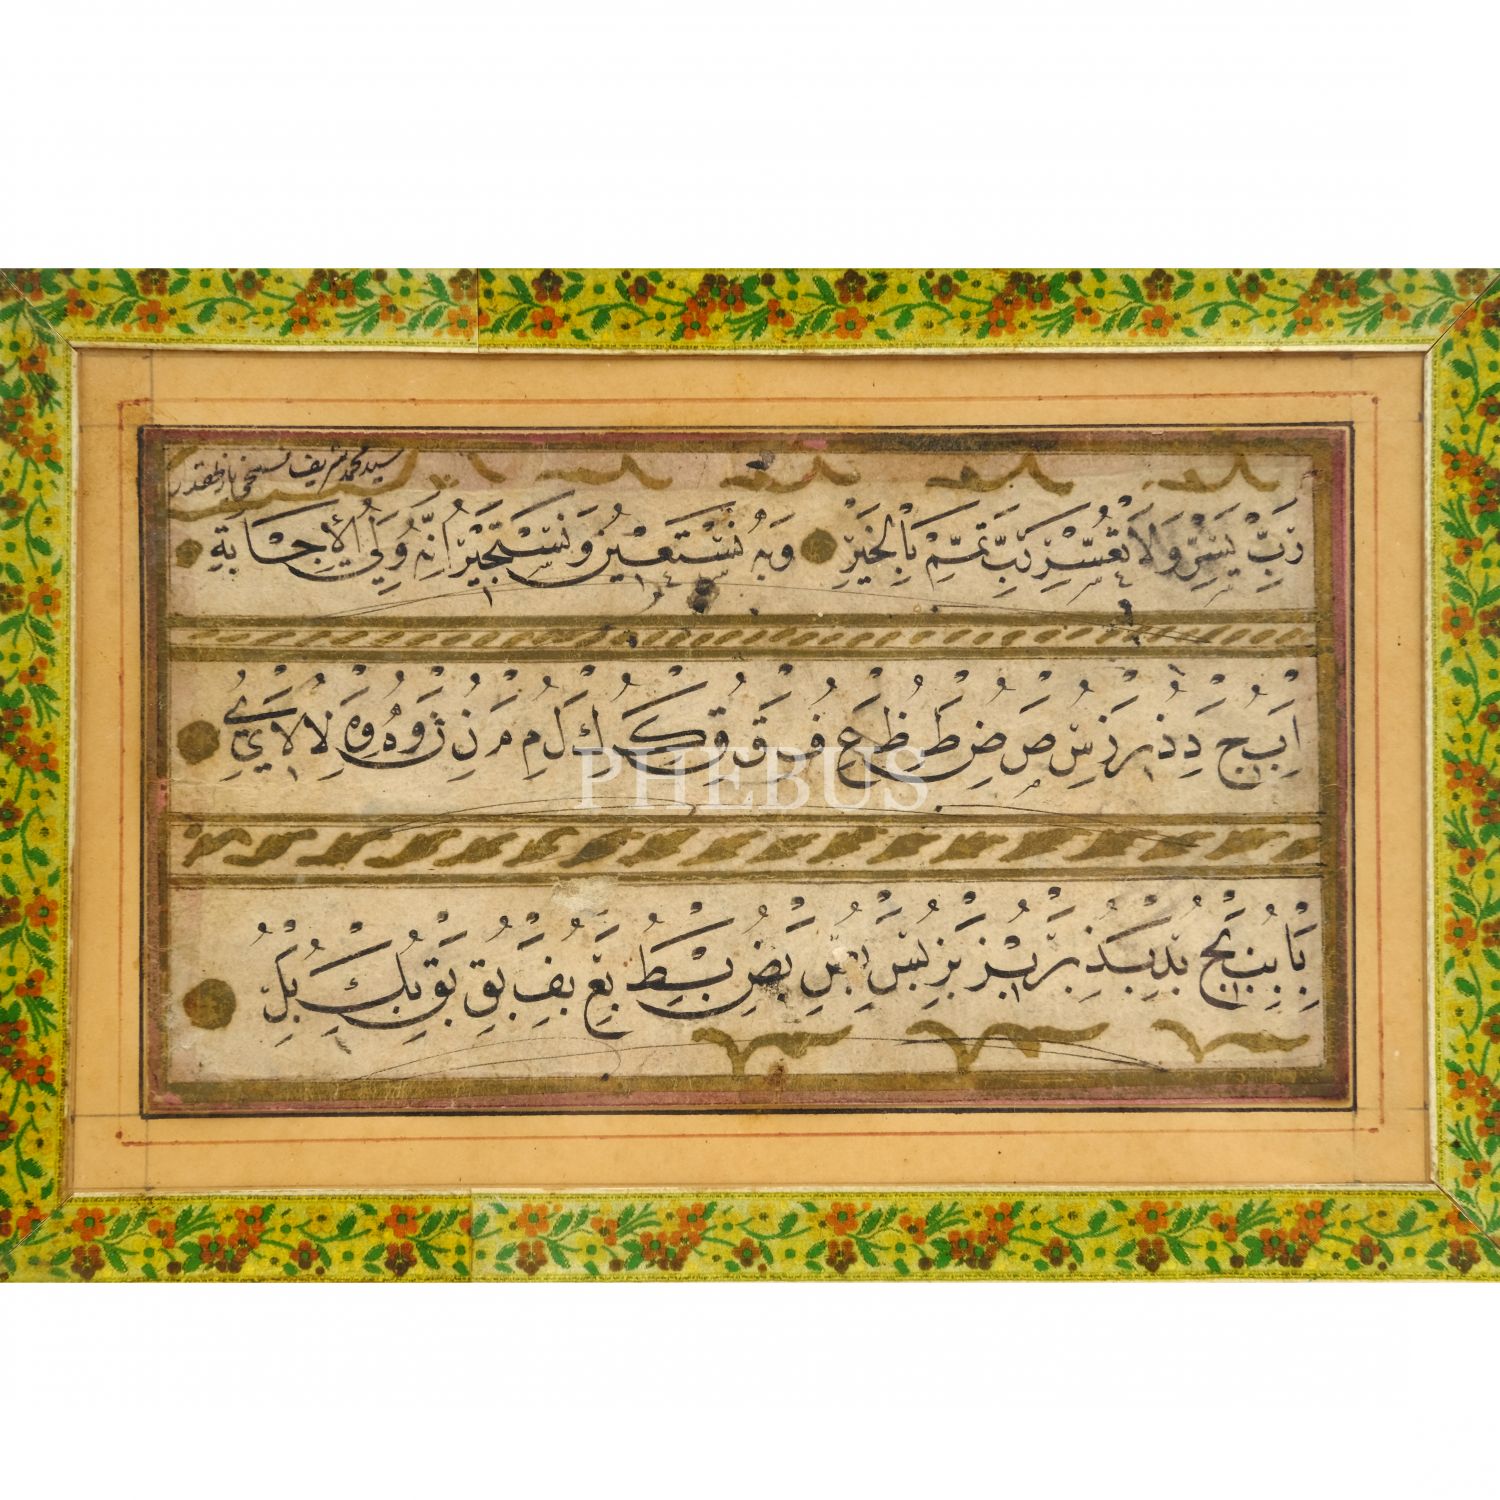 سيد محمد شريف نسخى
رَبِّ يَسِّرْ وَلَا تُعَسِّرْ رَبِّ تَمِّمْ بِالْخَيْرِ وَبِهِ نَسْتَعِينُ وَنَسْتَجِيرُ اِنَّهُ وَلِيُّ الْاِجَابَةِ
ا ب ج د ذ ر ز س ص ض ط ظ ع ف ق ق ك ك ل م م ن ن و ه و ه لا لا ي
با بب بج بد بذ بر بز بز بس بص بط بع بف بق بق بك بل
PHEBUS